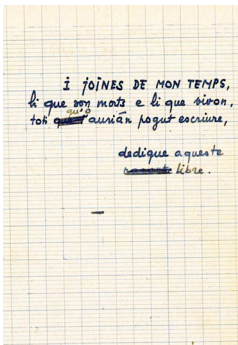 I JOINES DE MON TEMPS,
li que son morts e li que vivon,
qu'o
toti aurián pogut escriure,
dedique aqueste
libre.